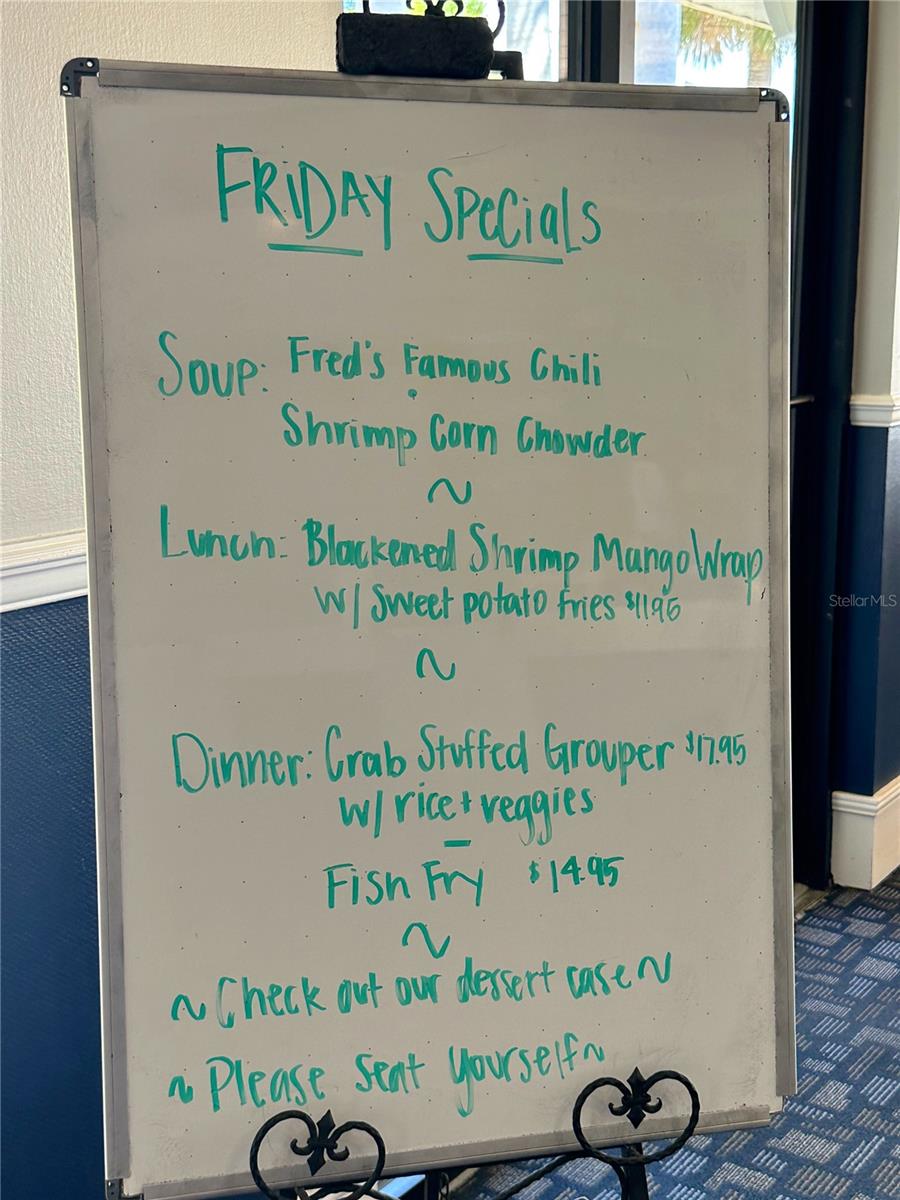 FRiDAY SPeCialS
Soup: Fred's Famous Chili
Shrimp Corn Chowder
~
Lunch: Blackened Shrimp Mango Wrap
w/ Sweet potato fries $11.95
~
Dinner: Crab Stuffed Grouper $17.95
w/ rice + veggies
–
Fish Fry $14.95
~
~ Check out our dessert case ~
~ Please seat yourself ~
StellarMLS